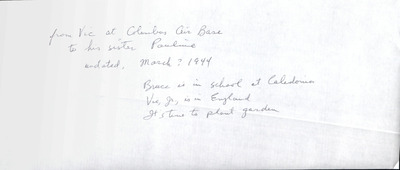 from Vic at Columbus Air Base
to his sister Pauline
undated. March? 1944
Bruce is in school at Caledonia
Vic, Jr., is in England
It's time to plant garden